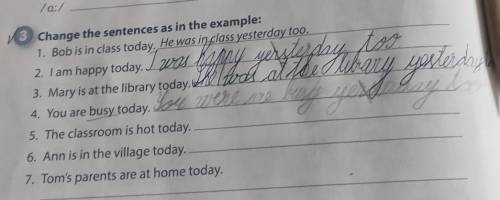 /ɑː/
3 Change the sentences as in the example:
1. Bob is in class today. He was in class yesterday too.
2. I am happy today. I was happy yersterday too.
3. Mary is at the library today. was at the library yesterday
4. You are busy today. You were busy yesterday too
5. The classroom is hot today.
6. Ann is in the village today.
7. Tom's parents are at home today.